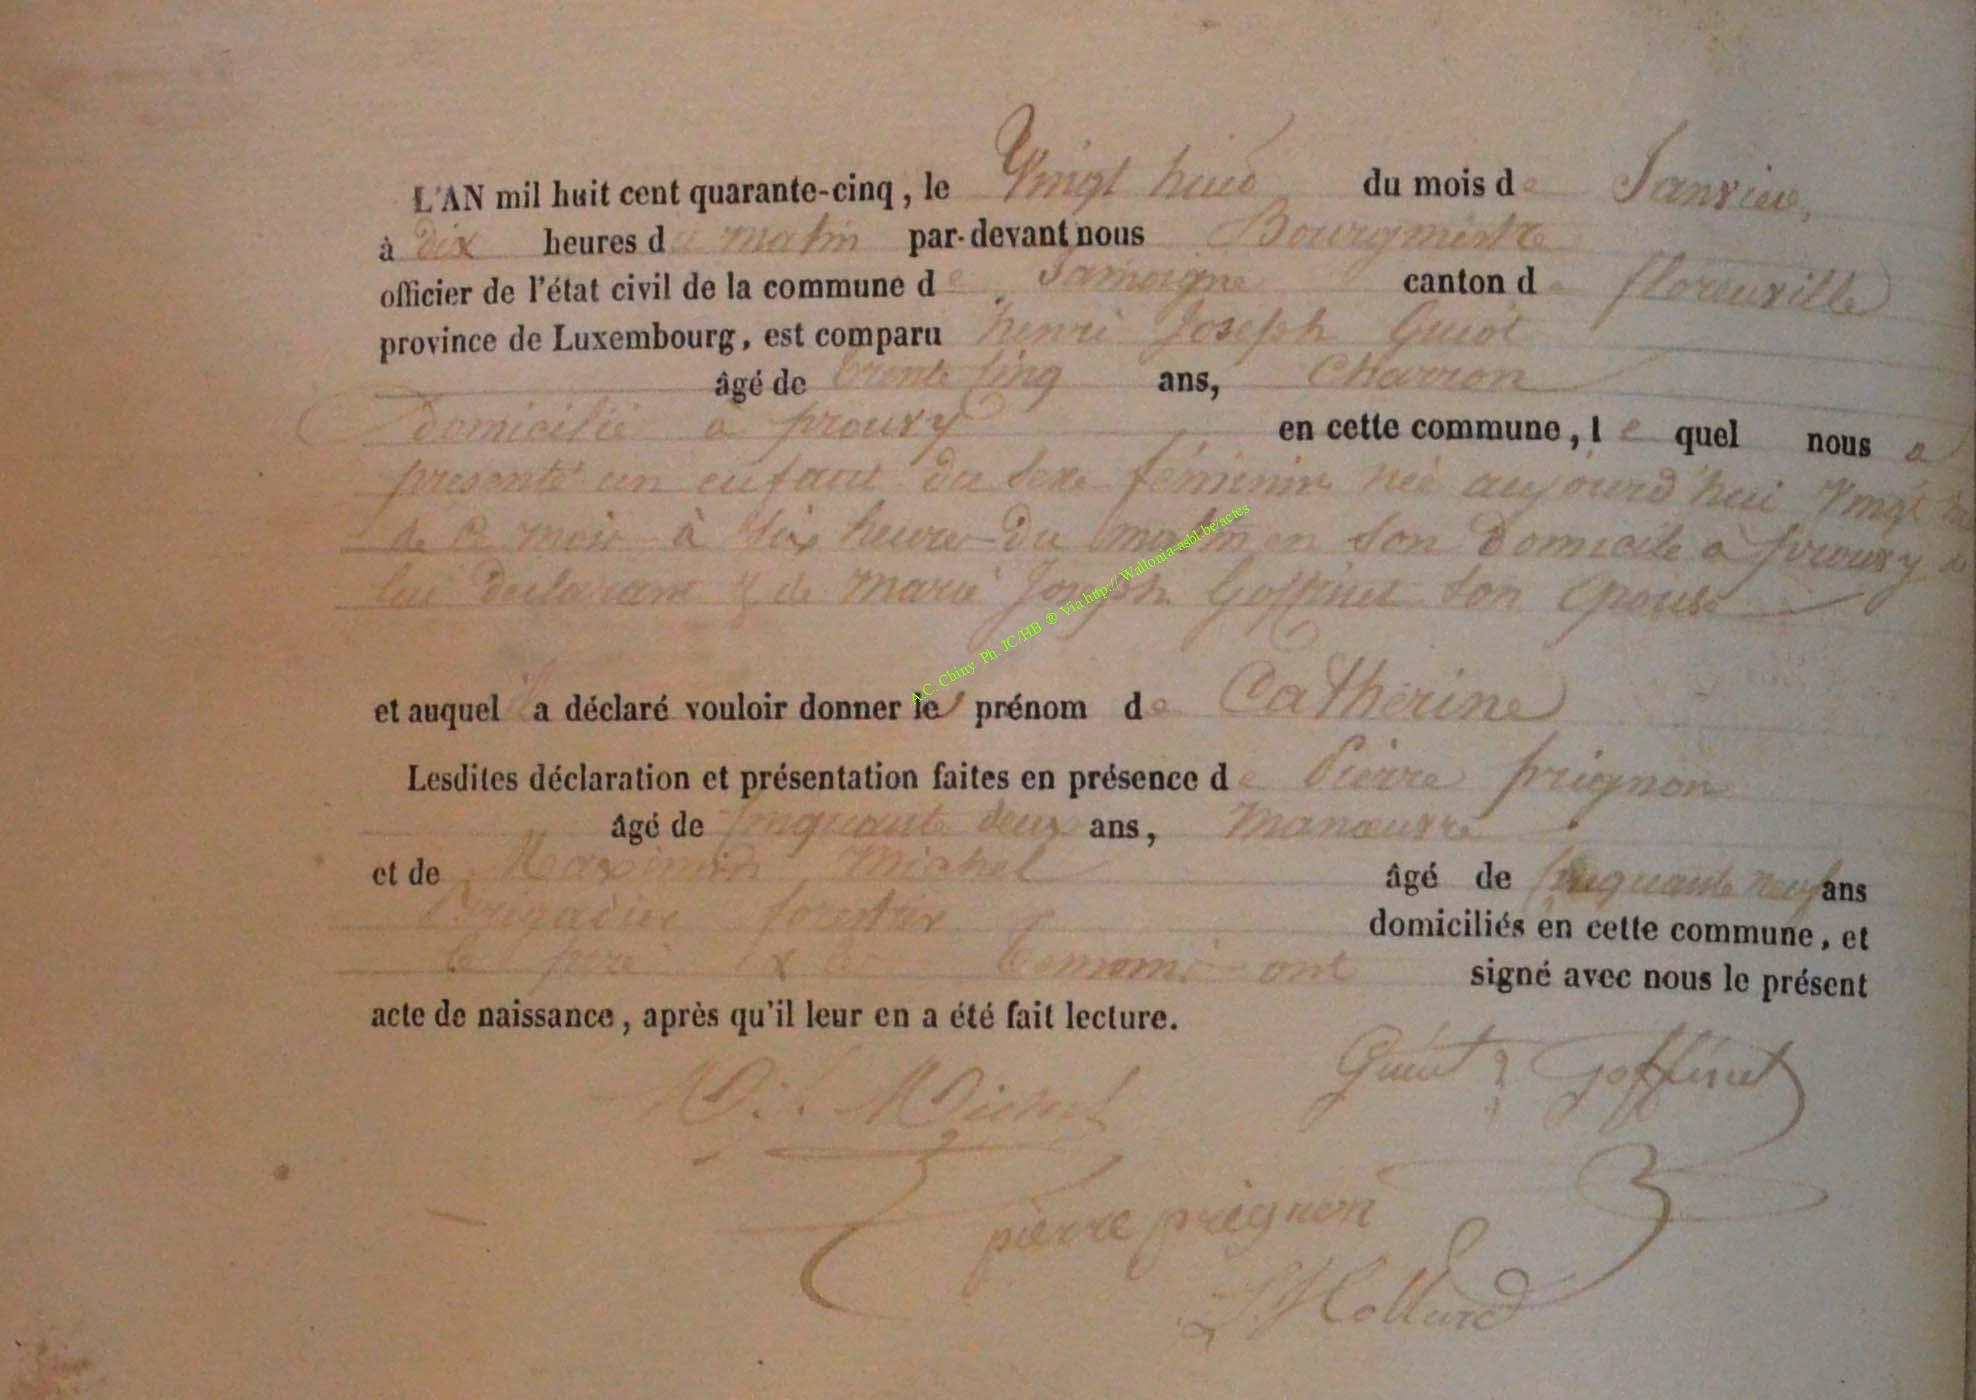 L'AN mil huit cent quarante-cinq, le Vingt huit du mois de Janvier,
à dix heures du matin par-devant nous Bourgmestre
officier de l'état civil de la commune de Jamoigne canton de florenville
province de Luxembourg, est comparu henri Joseph Guiot
âgé de trente cinq ans, Charron
domicilié à prouvy en cette commune, le quel nous a
presenté un enfant du sexe féminin née aujourd'hui vingt
de ce mois à six heures du matin en son Domicile à prouvy de
lui declarant & de marie Joseph Goffinet son epouse
et auquel il a déclaré vouloir donner le prénom de Catherine
Lesdites déclaration et présentation faites en présence de Pierre prignon
âgé de cinquante deux ans, manœuvre
et de Maximin Michel âgé de cinquante neuf ans
Brigadier forestier domiciliés en cette commune, et
le pere & les temoins ont signé avec nous le présent
acte de naissance, après qu'il leur en a été fait lecture.
Guiot Goffinet
Michel
pierre prignon
A.C. Chiny Ph. JC/HB ® Via http://Wallonia-asbl.be/actes